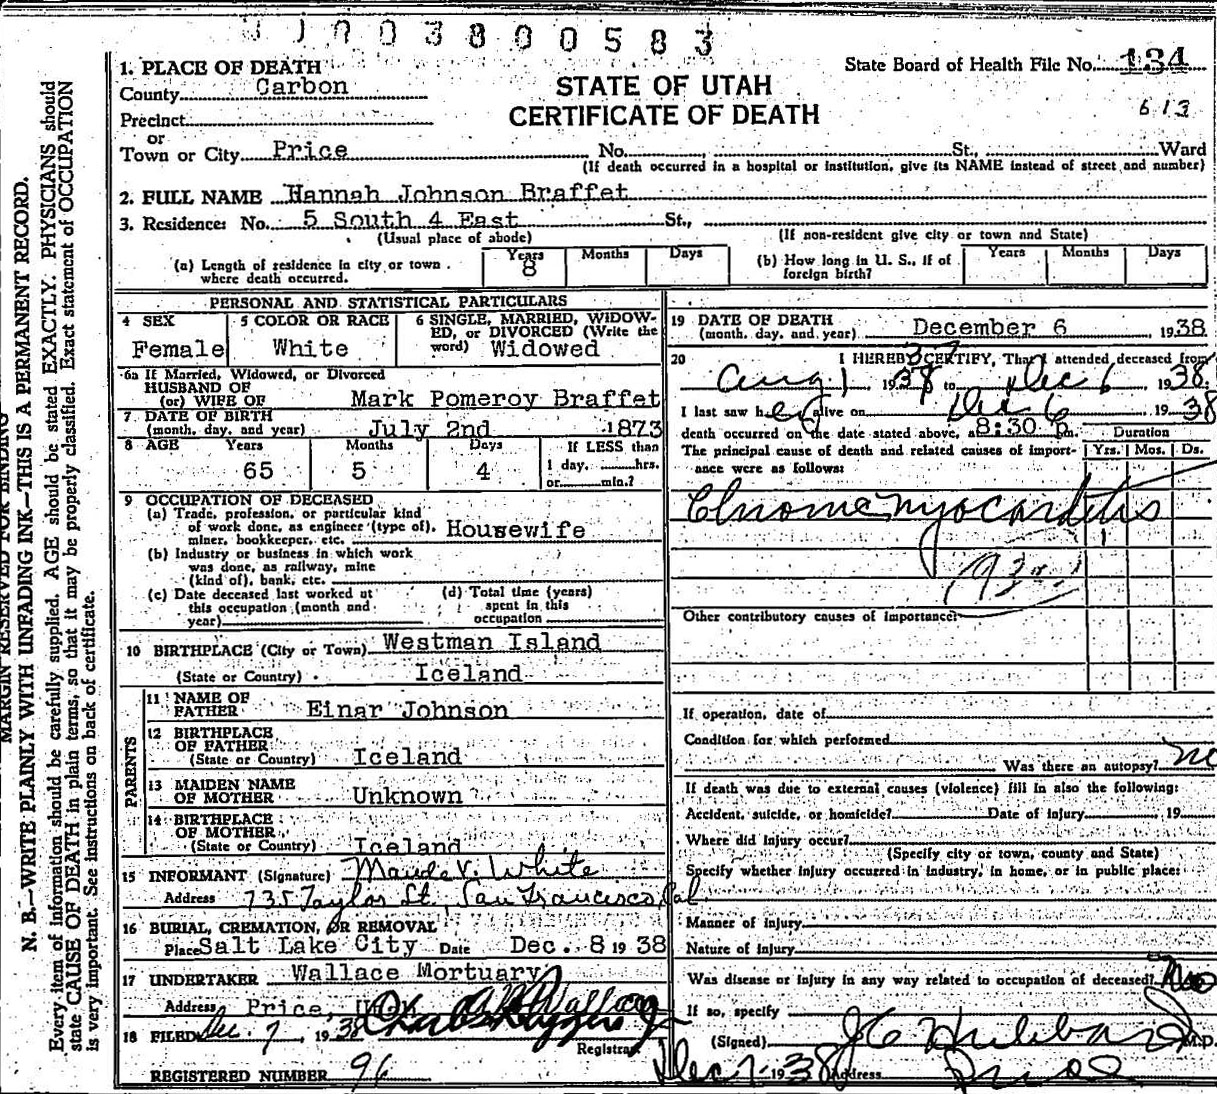 003800583
1. PLACE OF DEATH
County Carbon
Precinct
or
Town or City Price
STATE OF UTAH
CERTIFICATE OF DEATH
State Board of Health File No. 134
613
No. St., Ward
(If death occurred in a hospital or institution, give its NAME instead of street and number)
2. FULL NAME Hannah Johnson Braffet
3. Residence: No. 5 South 4 East St.,
(Usual place of abode)
(If non-resident give city or town and State)
(a) Length of residence in city or town where death occurred. Years 8 Months Days
(b) How long in U. S., if of foreign birth? Years Months Days
PERSONAL AND STATISTICAL PARTICULARS
4 SEX
Female
5 COLOR OR RACE
White
6 SINGLE, MARRIED, WIDOW-
ED, or DIVORCED (Write the
word) Widowed
6a If Married, Widowed, or Divorced
HUSBAND OF
(or) WIFE OF Mark Pomeroy Braffet
7 DATE OF BIRTH
(month, day, and year) July 2nd 1873
8 AGE Years Months Days If LESS than
65 5 4 1 day, hrs.
or min.?
9 OCCUPATION OF DECEASED
(a) Trade, profession, or particular kind
of work done, as engineer (type of),
miner, bookkeeper, etc. Housewife
(b) Industry or business in which work
was done, as railway, mine
(kind of), bank, etc.
(c) Date deceased last worked at
this occupation (month and
year)
(d) Total time (years)
spent in this
occupation
10 BIRTHPLACE (City or Town) Westman Island
(State or Country) Iceland
PARENTS
11 NAME OF
FATHER Einar Johnson
12 BIRTHPLACE
OF FATHER
(State or Country) Iceland
13 MAIDEN NAME
OF MOTHER Unknown
14 BIRTHPLACE
OF MOTHER
(State or Country) Iceland
15 INFORMANT (Signature) Maude V. White
Address 735 Taylor St., San Francisco, Cal.
16 BURIAL, CREMATION, OR REMOVAL
Place Salt Lake City Date Dec. 8 1938
17 UNDERTAKER Wallace Mortuary
Address Price,
18 FILED Dec. 7, 1938
Registrar
REGISTERED NUMBER 96
19 DATE OF DEATH
(month, day, and year) December 6 1938
20 I HEREBY CERTIFY, That I attended deceased from
37
Aug 1 1938 to Dec 6, 1938
I last saw her alive on Dec 6 1938
death occurred on the date stated above, at 8:30 p m.
The principal cause of death and related causes of import-
ance were as follows:
Duration
Yrs. Mos. Ds.
Chronic myocarditis
93
Other contributory causes of importance:
If operation, date of
Condition for which performed
Was there an autopsy? no
If death was due to external causes (violence) fill in also the following:
Accident, suicide, or homicide? Date of injury , 19
Where did injury occur?
(Specify city or town, county and State)
Specify whether injury occurred in industry, in home, or in public place:
Manner of injury
Nature of injury
Was disease or injury in any way related to occupation of deceased? No
If so, specify
(Signed) J C Hubbard M.D.
Dec 7- 1938 Address Price
MARGIN RESERVED FOR BINDING
N. B.—WRITE PLAINLY WITH UNFADING INK—THIS IS A PERMANENT RECORD.
Every item of information should be carefully supplied. AGE should be stated EXACTLY. PHYSICIANS should
state CAUSE OF DEATH in plain terms, so that it may be properly classified. Exact statement of OCCUPATION
is very important. See instructions on back of certificate.